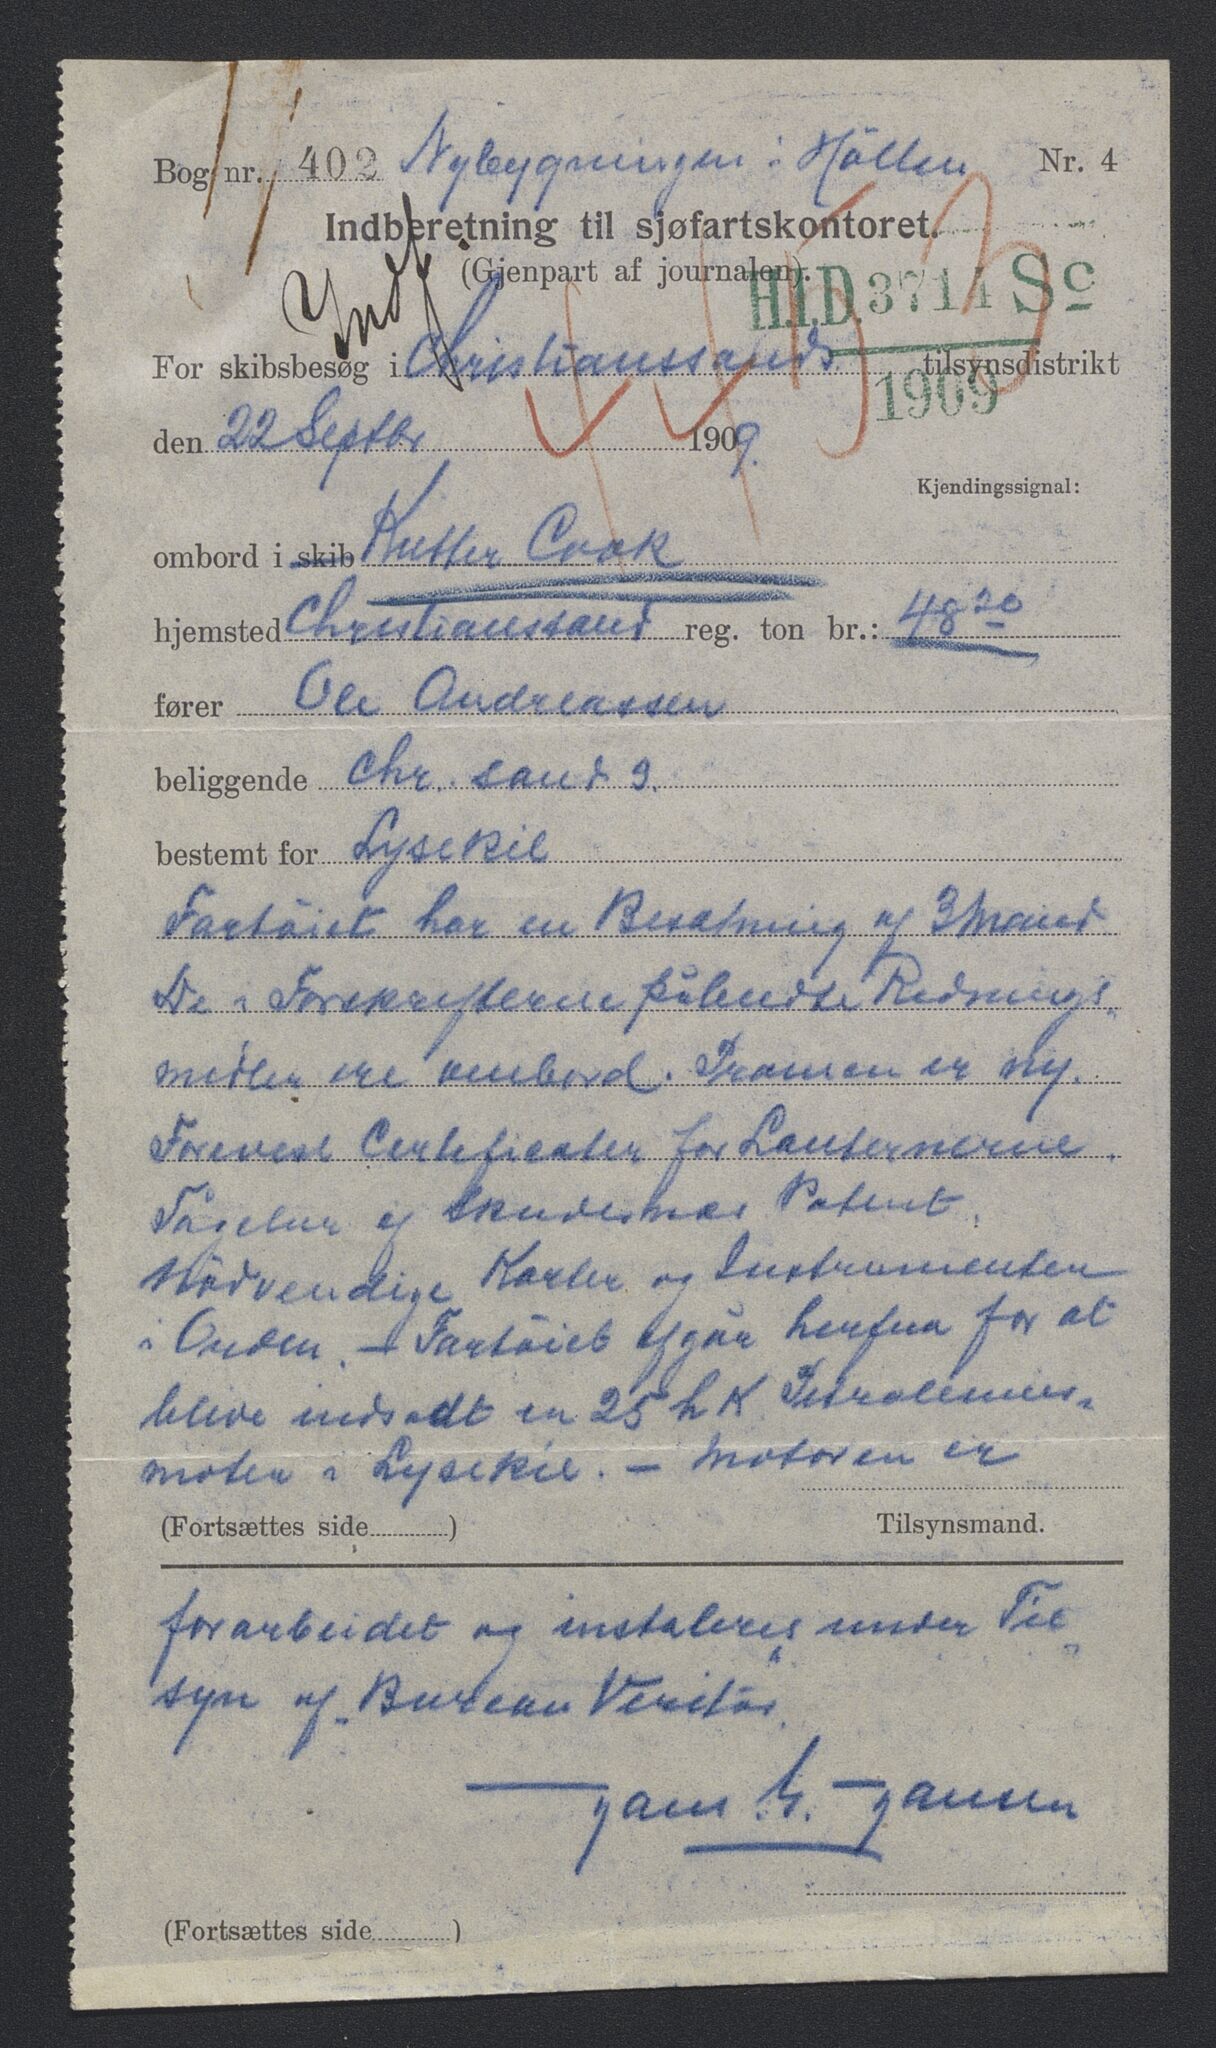 Bog nr. 402 Nybygningen i Höllen Nr. 4
Indberetning til sjøfartskontoret.
(Gjenpart af journalen).
H.I.D. 3714 Sc
1909
Indf
For skibsbesøg i Christianssands tilsynsdistrikt
den 22 Septbr 1909.
Kjendingssignal:
ombord i skib Kutter Cook
hjemsted Christianssand reg. ton br.: 48 20
fører Ole Andreassen
beliggende Chr. sand S.
bestemt for Lysekil
Fartöiet har en Besætning af 3 Mand
De i Forskrifterne påbudte Rednings-
midler ere ombord. Pramen er ny.
Forevist Certifikater for Lanternerne.
Tågelur af Skudesnæs Patent.
Nödvendige Karter og Instrumenter
i Orden. – Fartöiet afgår herfra for at
blive indsadt en 25 h K Petroleums-
moter i Lysekil. – Motoren er
(Fortsættes side ) Tilsynsmand.
forarbeidet og instaleres under Til-
syn af "Bureau Veritas"
(Fortsættes side )